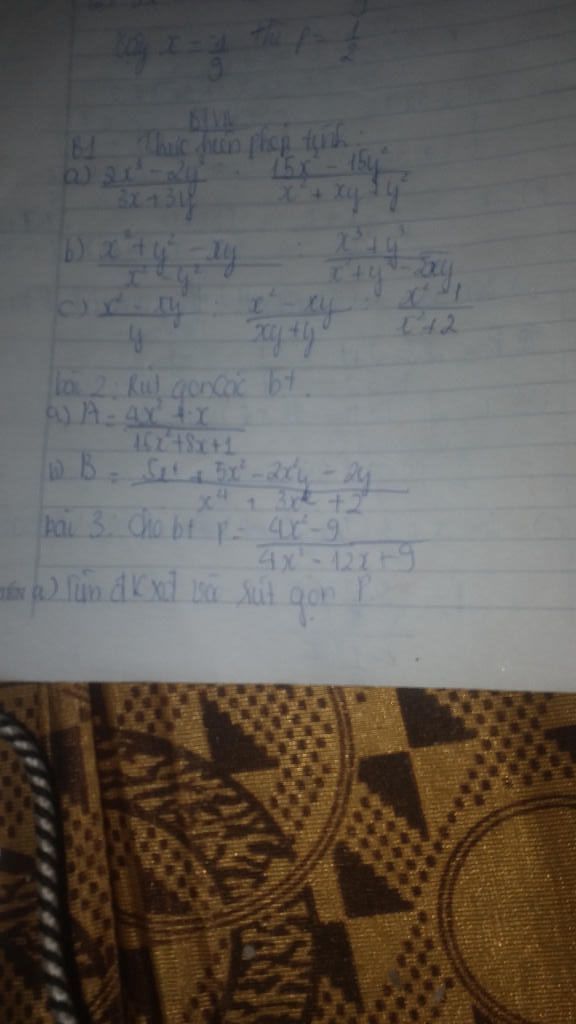 Vậy x = 1/9 thì P = 1/2
BTVN
B1 Thực hiện phép tính:
a) (2x³ - 2y³)/(3x + 3y) · (15x² - 15y²)/(x² + xy + y²)
b) (x² + y² - xy)/(x² - y²) : (x³ + y³)/(x² + y² - 2xy)
c) /y : (x² - xy)/(xy + y) : (x² - 1)/(x² + 2)
bài 2: Rút gọn các bt.
a) A = (4x² + x)/(16x² + 8x + 1)
b) B = - 2x²y - 2y/(x⁴ + 3x² + 2)
bài 3. Cho bt P = (4x² - 9)/(4x² - 12x + 9)
a) Tìm đkxđ và rút gọn P